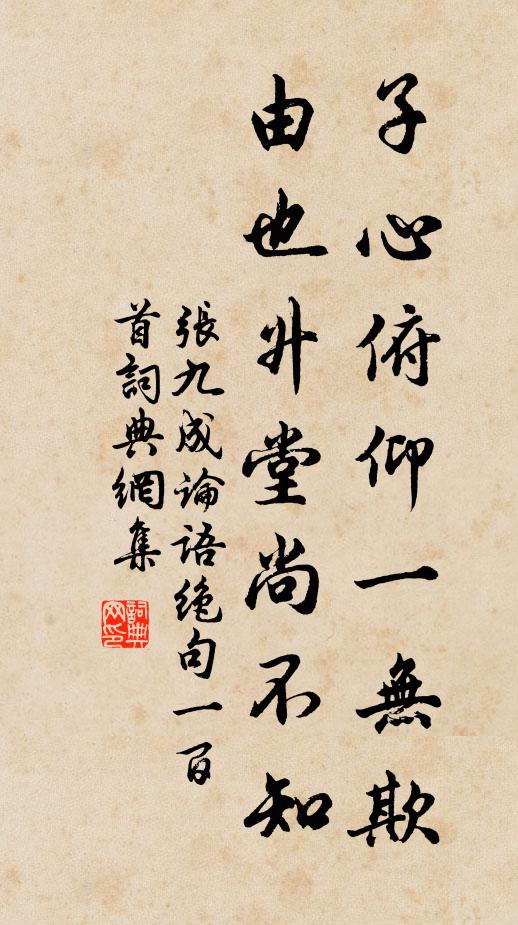 子心俯仰一無欺
由也升堂尚不知
張九成論語絶句一百
首詞典網集
詞典网印